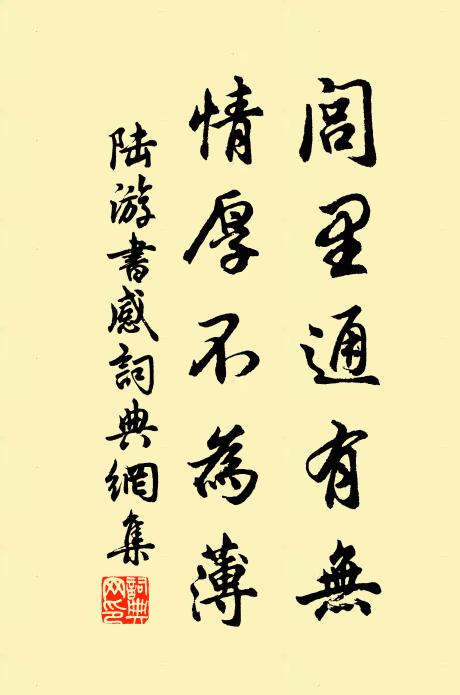 閭里通有無
情厚不為薄
陸游書感詞典網集
詞典网印